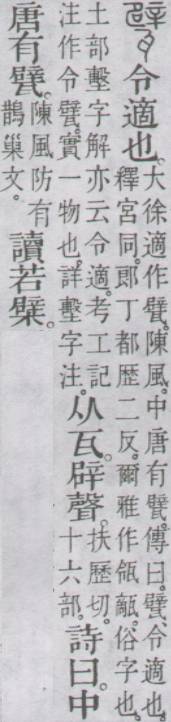 甓令適也。
大徐適作甓。陳風。中唐有甓。傳曰。甓、令適也。
釋宮同。郎丁都歴二反。爾雅作瓴甋。俗字也。
土部墼字解亦云令適。考工記
注作令甓。實一物也。詳墼字注。
从瓦。辟聲。
扶歴切。
十六部。
詩曰。中
唐有甓。
陳風防有
鵲巢文。
讀若檗。